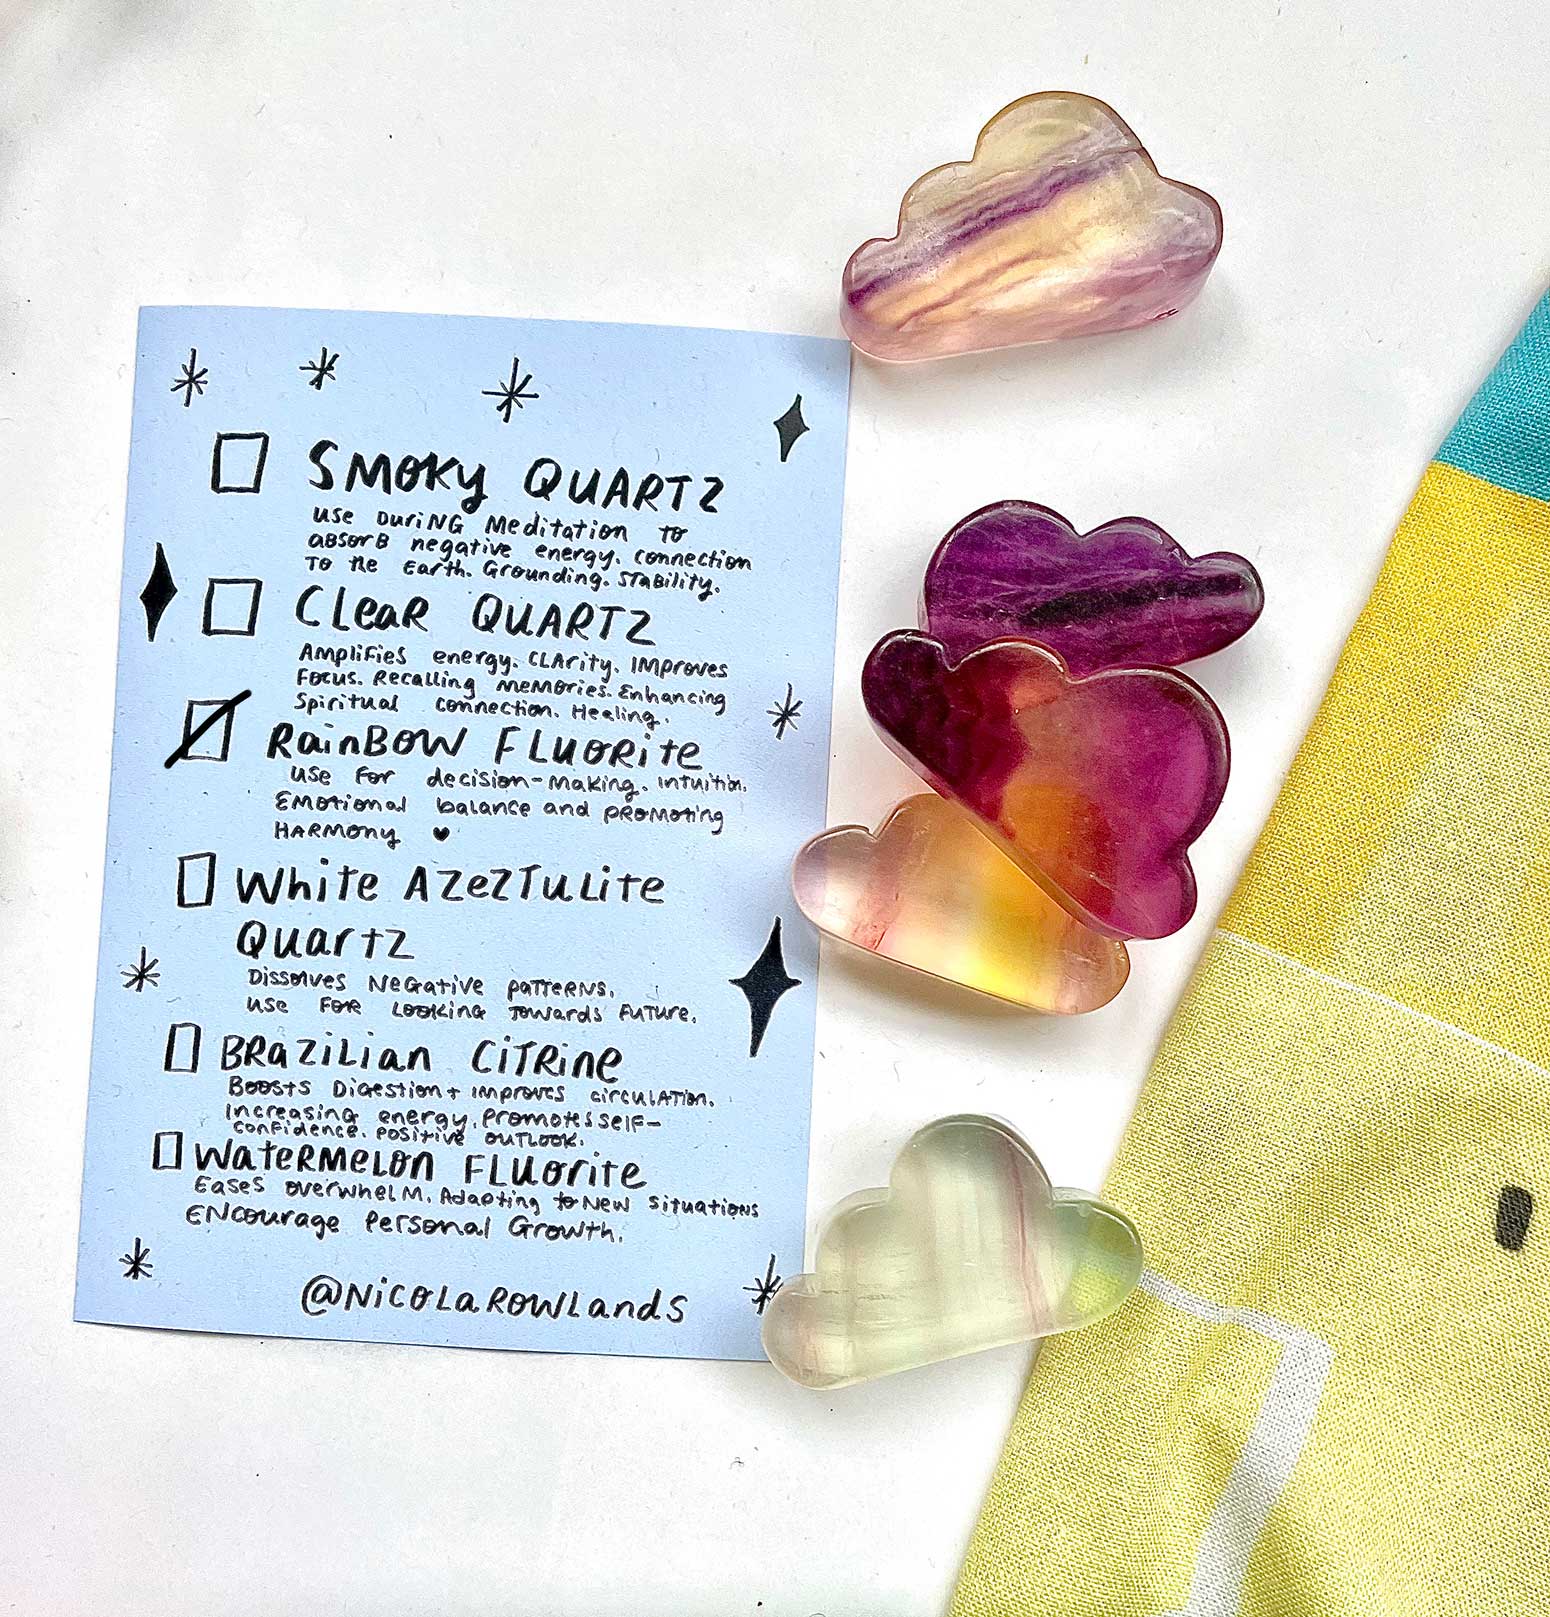 SMOKY QUARTZ
USE DURING Meditation to
ABSORB negative energy. connection
To the Earth. Grounding. Stability.
CLEAR QUARTZ
AMPLIFIES energy. CLARITY. IMPROVES
FOCUS. Recalling MEMORIES. Enhancing
Spiritual connection. Healing.
RainBOW FLUORITE
USE FOR decision-making. intuition.
Emotional balance and PROMOTING
HARMONY ♥
White AZEZTULITE
Quartz
DISSOLVES NEGATIVE PATTERNS.
USE FOR LOOKING TOWARDS FUTURE.
BRAZILIAN CITRINE
BOOSTS DIGESTION + IMPROVES CIRCULATION.
Increasing energy. Promotes self-
confidence. Positive OUTLOOK.
WATERMELON FLUORITE
EASES OVERWHELM. Adapting to New Situations
ENCOURAGE Personal Growth.
@NICOLAROWLANDS